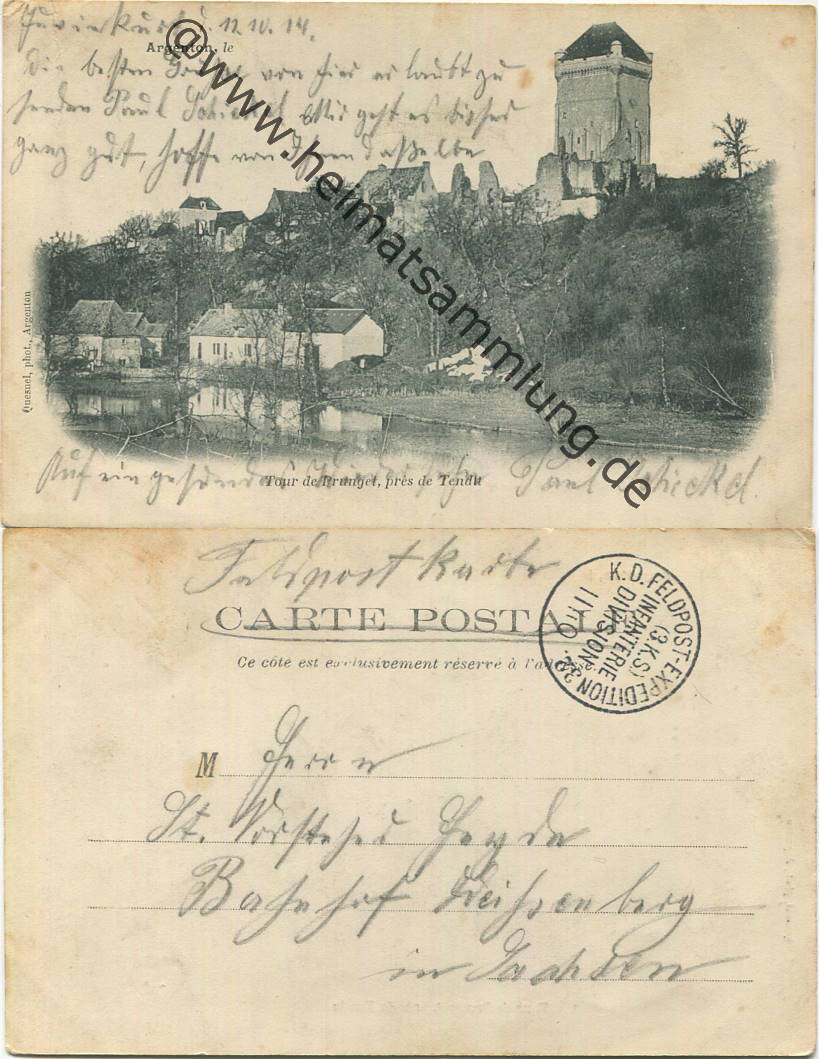 Juvincourt d. 12.10.14.
Argenton, le
Die besten Grüße von hier erlaubt zu
senden Paul Schickel Mir geht es bisher
ganz gut, hoffe von Ihnen dasselbe
©www.heimatsammlung.de
Quesnel, phot., Argenton
Auf ein gesundes Wiedersehn Paul Schickel.
Tour de Prunget, près de Tendu
Feldpostkarte
CARTE POSTALE
Ce côté est exclusivement réservé à l'adresse
K.D. FELDPOST-EXPEDITION
32.
INFANTERIE
DIVISION
(3.K.S)
M Herrn
St. Vorsteher Heyde
Bahnhof
in Sachsen